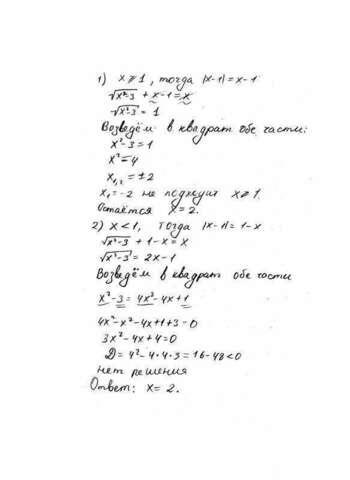 1) x ⩾ 1, тогда |x-1| = x-1
√x²-3 + x-1 = x
√x²-3 = 1
Возведём в квадрат обе части:
x²-3 = 1
x² = 4
x₁,₂ = ±2
x₁ = -2 не подходит x ⩾ 1.
Остаётся x = 2.
2) x < 1, тогда |x-1| = 1-x
√x²-3 + 1-x = x
√x²-3 = 2x-1
Возведём в квадрат обе части
x²-3 = 4x²-4x+1
4x²-x²-4x+1+3=0
3x²-4x+4=0
D = 4²-4·4·3 = 16-48<0
нет решения
Ответ: x = 2.